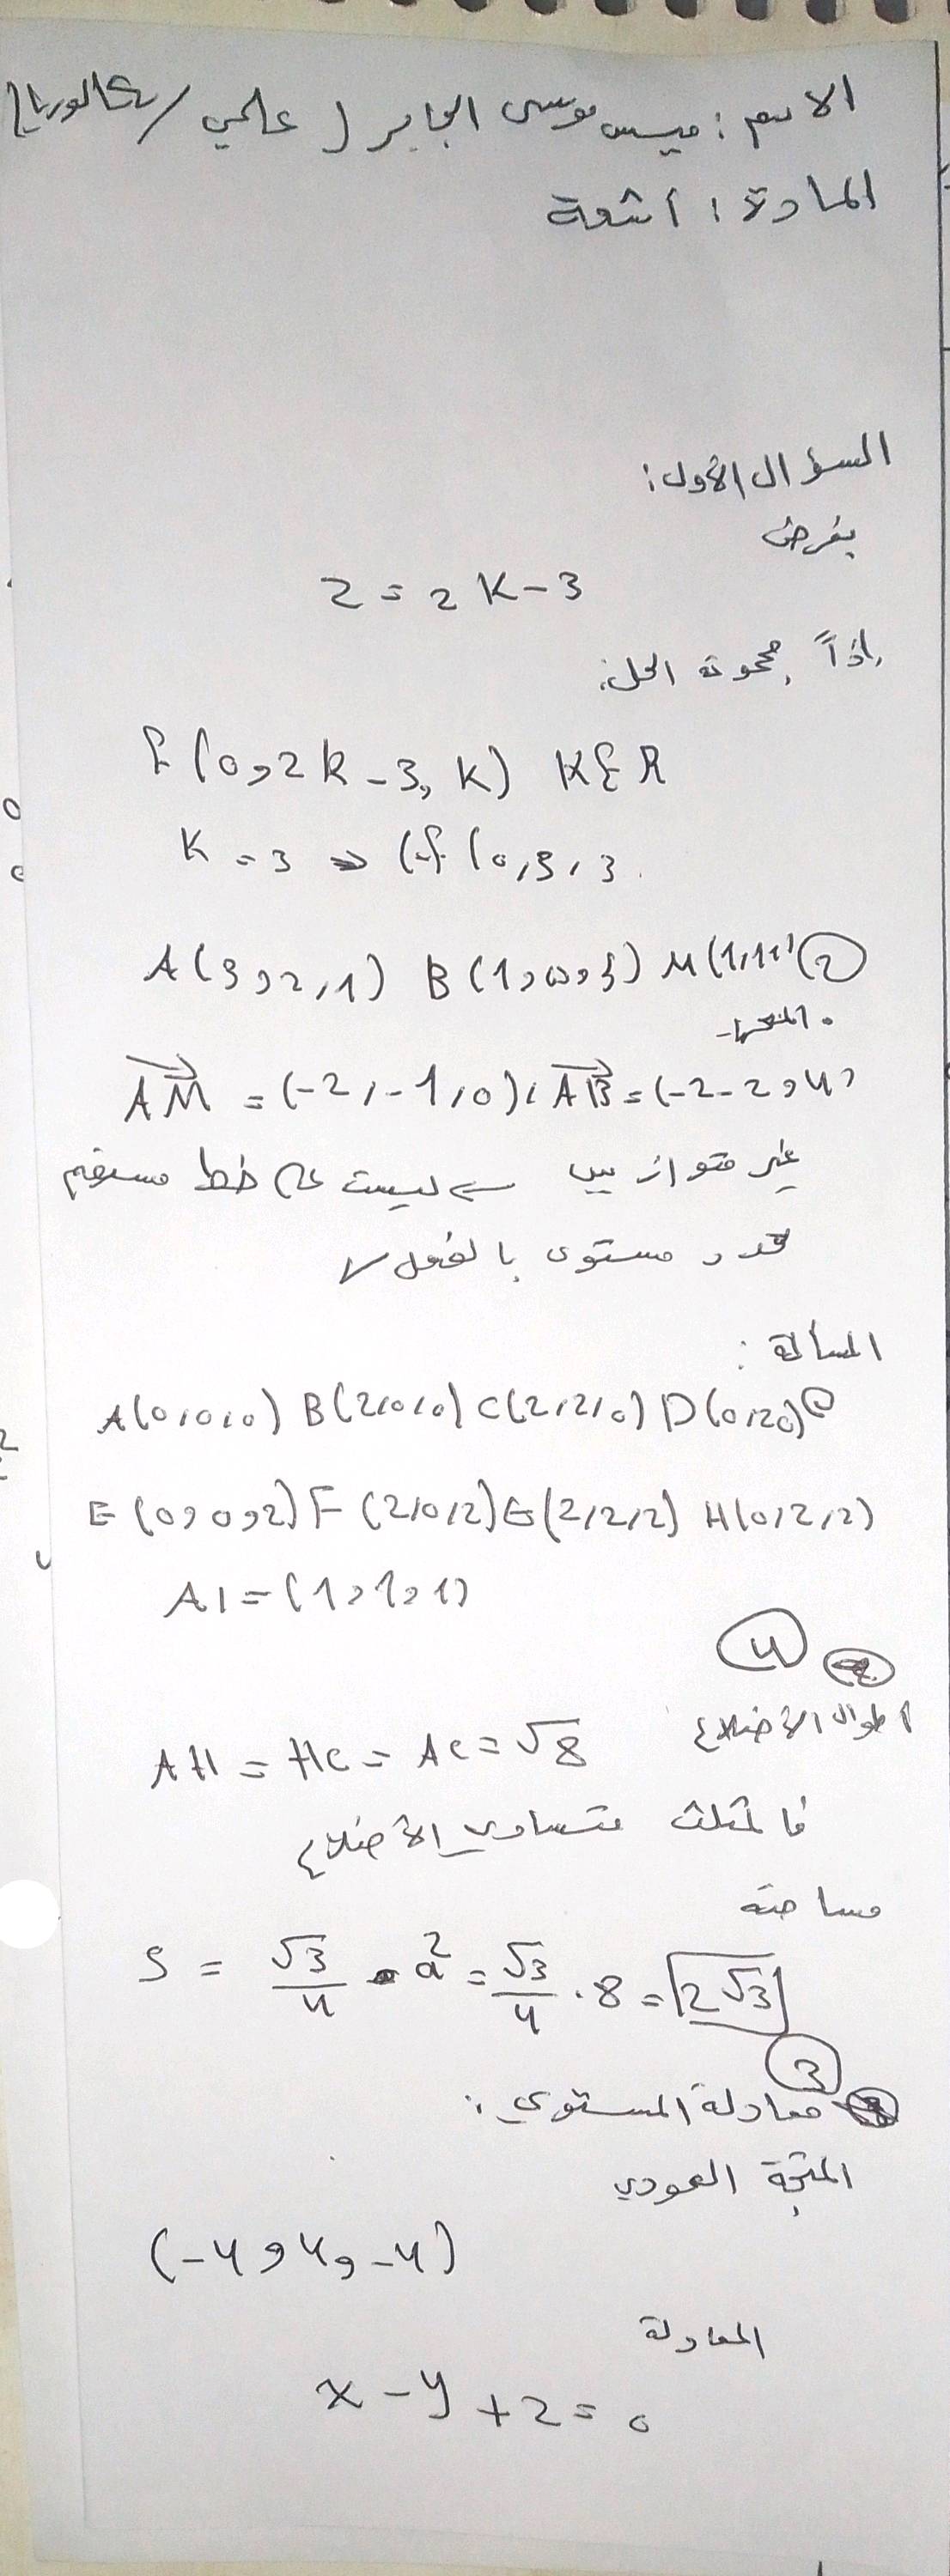 الاسم: ميس موسى الجابر (علمي / بكالوريا)
المادة: أشعة
السؤال الأول:
بفرض
z = 2K-3
إذاً مجموعة الحل:
{(0,2k-3,K) K∈R
K=3 => {(0,3,3
A(3,2,1) B(1,0,5) M(1,1,1 ②
AM = (-2,-1,0), AB = (-2-2,4,
غير متوازيين => ليست على خط مستقيم
تحدد مستوى بالفعل
المسألة:
A(0,0,0) B(2,0,0) C(2,2,0) D(0,2,0)
E(0,0,2) F(2,0,2) G(2,2,2) H(0,2,2)
AI = (1,1,1)
④
أطوال الأضلاع AH = HC = AC = √8
فالمثلث متساوي الأضلاع
مساحته
S = √3/4 · a² = √3/4 · 8 = 2√3
③
معادلة المستوي:
المتجه العمودي
(-4,4,-4)
المعادلة
x-y+z=0